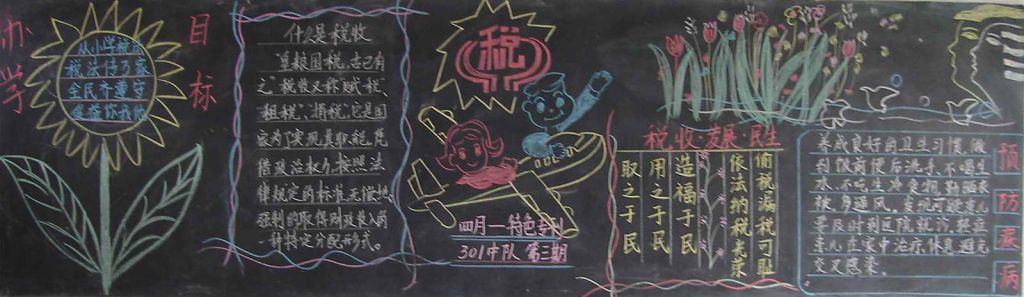 办学
目标
从小学税法
税法传万家
全民齐遵守
什么是税收
"皇粮国税,古已有
之"税收又称"赋税、
"租税"、"捐税",它是国
家为了实现其职能,凭
借政治权力,按照法
律规定的标准,无偿地、
强制的取得财政收入的
一种特定分配形式。
税
四月一特色专刊
301中队 第三期
税收·发展·民生
偷税漏税可耻
依法纳税光荣
造福于民
用之于民
取之于民
预防疾病
养成良好的卫生习惯,做
到饭前便后洗手、不喝生
水、不吃生冷食物,勤晒衣
被,多通风,发现可疑患儿
要及时到医院就诊,轻症
患儿在家中治疗、休息,避免
交叉感染。